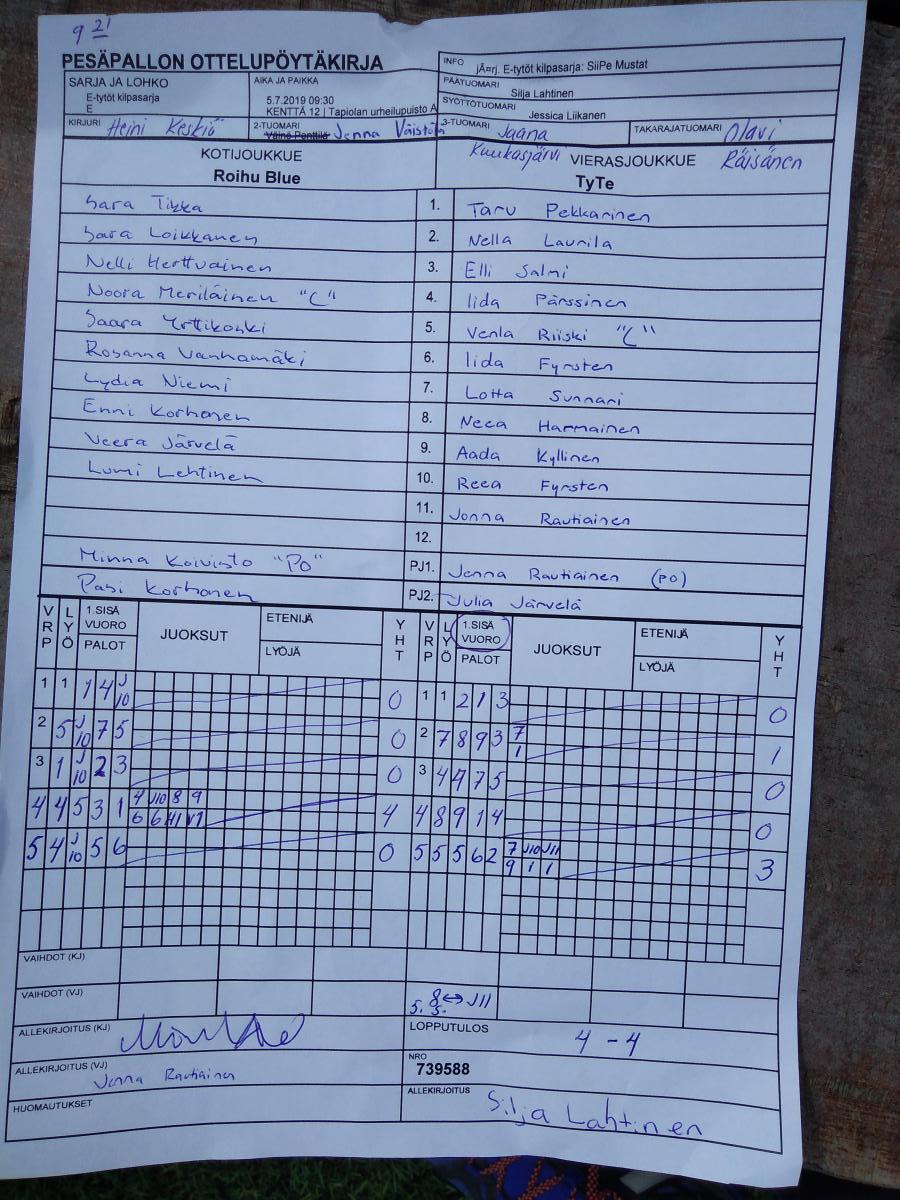 9 21
PESÄPALLON OTTELUPÖYTÄKIRJA
SARJA JA LOHKO
E-tytöt kilpasarja
E
AIKA JA PAIKKA
5.7.2019 09:30
KENTTÄ 12 | Tapiolan urheilupuisto A
INFO
jÃ¤rj. E-tytöt kilpasarja: SiiPe Mustat
PÄÄTUOMARI
Silja Lahtinen
SYÖTTÖTUOMARI
Jessica Liikanen
KIRJURI Heini Keskiö
2-TUOMARI
Väinö Penttilä Jenna Väistö
3-TUOMARI Jaana Kuukasjärvi
TAKARAJATUOMARI Olavi Räisänen
KOTIJOUKKUE
Roihu Blue
VIERASJOUKKUE
TyTe
Sara Tikka 1. Taru Pekkarinen
Sara Loikkanen 2. Nella Laurila
Nelli Herttuainen 3. Elli Salmi
Noora Meriläinen "C" 4. Iida Pärssinen
Saara Yrttikoski 5. Venla Riiski "C"
Rosanna Vanhamäki 6. Iida Fyrsten
Lydia Niemi 7. Lotta Sunnari
Enni Korhonen 8. Neea Harmainen
Veera Järvelä 9. Aada Kyllinen
Lumi Lehtinen 10. Reea Fyrsten
11. Jonna Rautiainen
12.
Minna Koivisto "PO" PJ1. Jenna Rautiainen (PO)
Pasi Korhonen PJ2. Julia Järvelä
VRP LYÖ 1.SISÄ VUORO PALOT JUOKSUT ETENIJÄ LYÖJÄ YHT VRP LYÖ 1.SISÄ VUORO PALOT JUOKSUT ETENIJÄ LYÖJÄ YHT
1 1 1 4 J10 0 1 1 2 1 3 0
2 5 J10 7 5 0 2 7 8 9 3 7 1 1
3 1 J10 2 3 0 3 4 4 7 5 0
4 4 5 3 1 4 J10 8 9 4 4 8 9 1 4 0
6 6
5 4 J10 5 6 0 5 5 5 6 2 7 J10 J11 3
9 1 1
VAIHDOT (KJ)
VAIHDOT (VJ) 8↔J11
5. 5.
ALLEKIRJOITUS (KJ)
LOPPUTULOS 4 - 4
ALLEKIRJOITUS (VJ)
Jenna Rautiainen
NRO
739588
HUOMAUTUKSET
ALLEKIRJOITUS
Silja Lahtinen